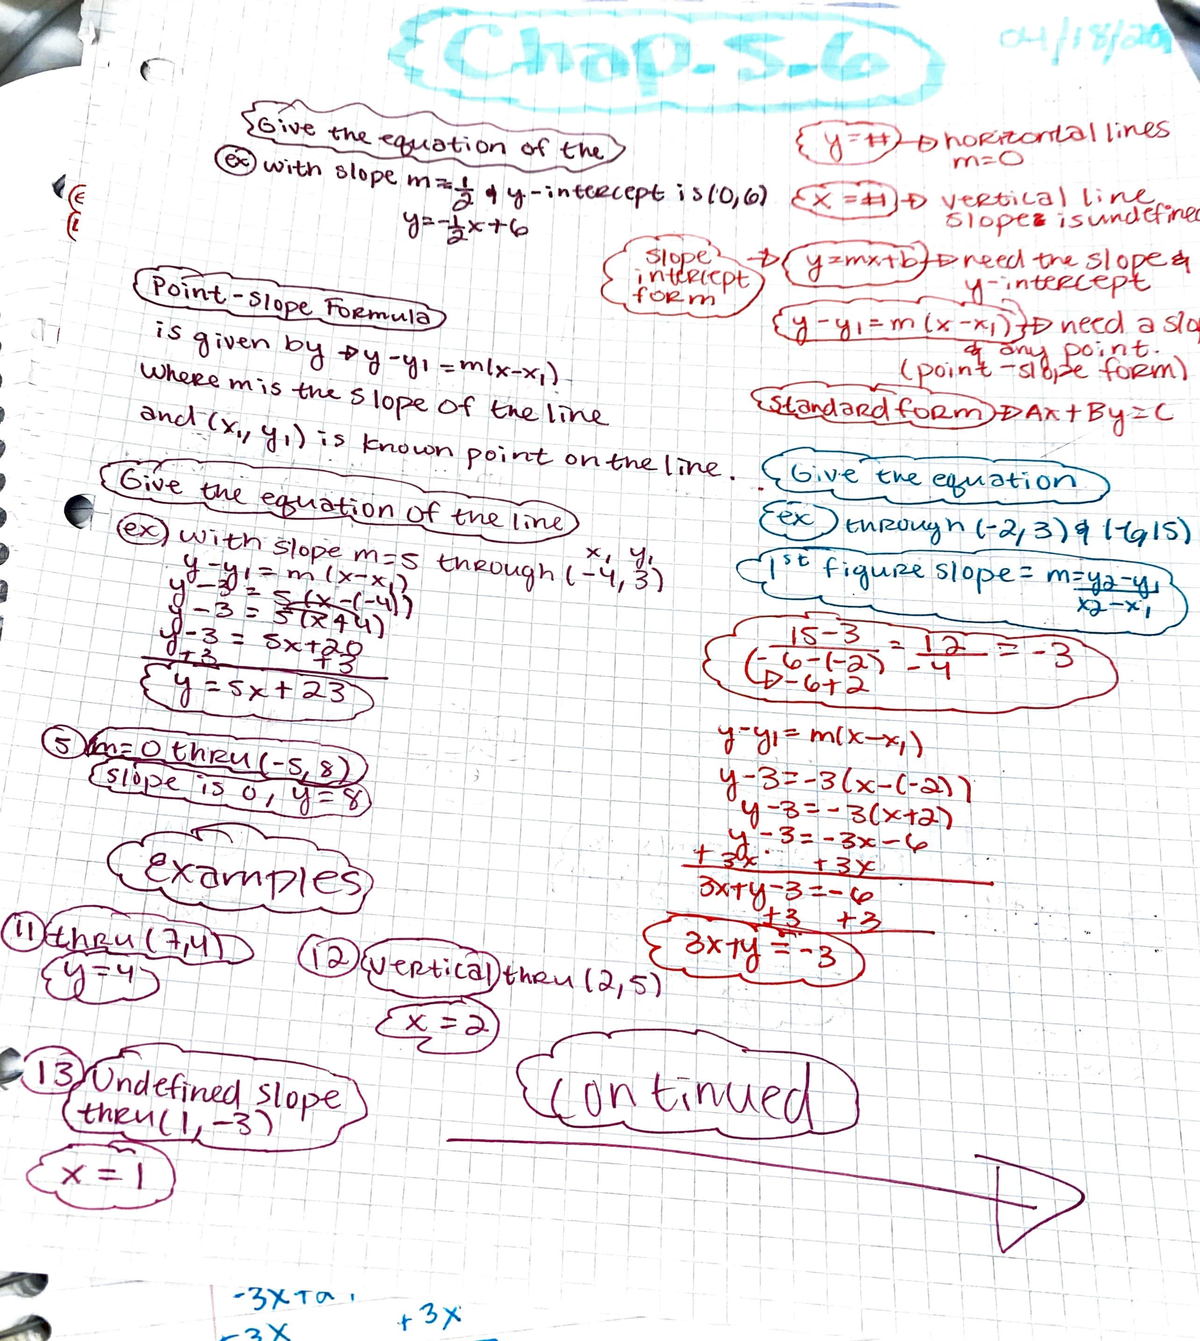 Chap. 5.6
04/18/20
Give the equation of the
ex with slope m=½ & y-intercept is (0,6)
y=-½x+6
Point-Slope Formula
is given by → y-y₁=m(x-x₁)
where m is the slope of the line
and (x₁, y₁) is known point on the line.
Give the equation of the line
ex with slope m=5 through (-4, 3)
x₁ y₁
y-y₁=m(x-x₁)
y-3=5(x-(-4))
y-3=5(x+4)
y-3=5x+20
+3 +3
y=5x+23
5 m=0 thru (-5, 8)
slope is 0, y=8
Examples
11 thru (7,4)
y=4
12 vertical thru (2,5)
x=2
13 Undefined slope
thru (1,-3)
x=1
y=# → horizontal lines
m=0
x=# → vertical line
slope is undefined
slope intercept form → y=mx+b → need the slope &
y-intercept
y-y₁=m(x-x₁) → need a slo
& any point.
(point-slope form)
Standard form → Ax+By=C
Give the equation
ex through (-2,3) & (-6,15)
1st figure slope = m=y₂-y₁
x₂-x₁
15-3 = 12 = -3
-6-(-2) -4
→-6+2
y-y₁=m(x-x₁)
y-3=-3(x-(-2))
y-3=-3(x+2)
y-3=-3x-6
+3x +3x
3x+y-3=-6
+3 +3
3x+y=-3
continued
-3x+a
+3x
-3x